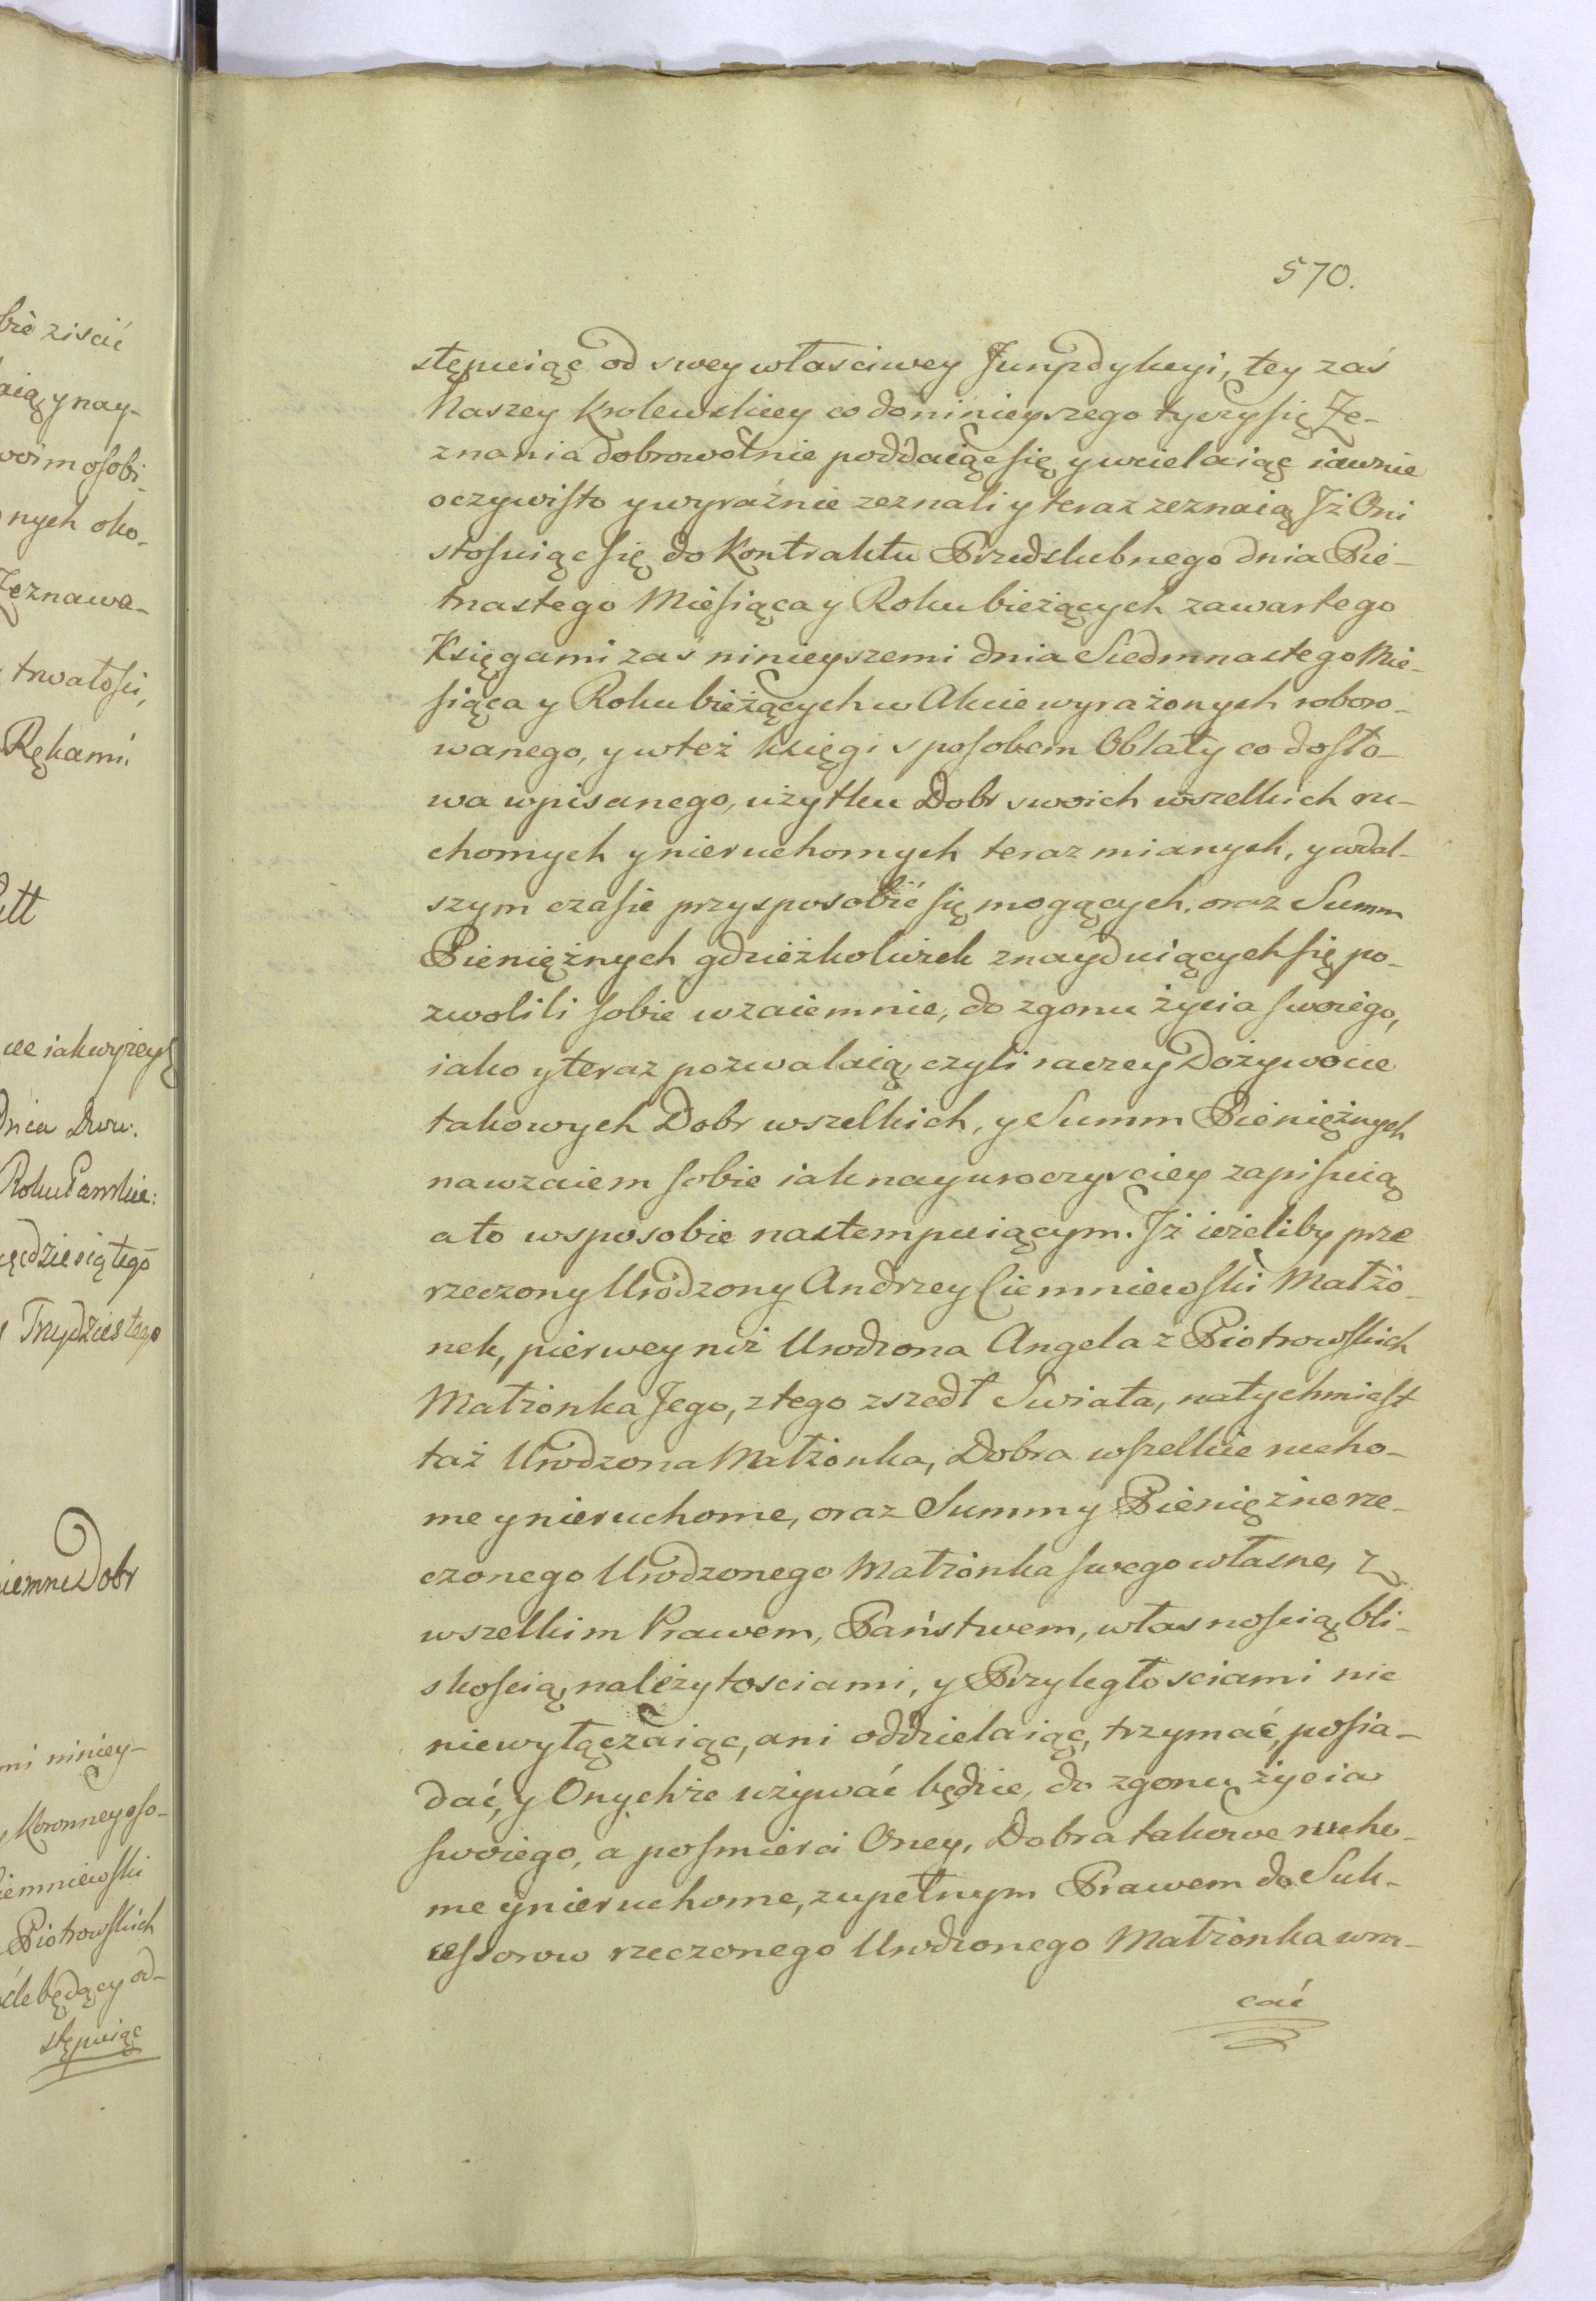 bie ziscić
aią y nay-
woim osobi-
nych oko-
Zeznawa-
trwałosci,
Rękami.
ce iak wyzey
Dnia Dwu:
Roku Pańskie:
ędziesiątego
Trzydziestego
iemne Dobr
mi niniey-
Koronney oso-
iemniewski
Piotrowskich
będący od-
stępuiąc
570.
stępuiąc od swey własciwey Juryzdykcyi, tey zaś
Naszey Krolewskiey co do ninieyszego tyczy się Ze-
znania dobrowolnie poddaiąc się y wcielaiąc iawnie
oczywisto y wyraźnie zeznali y teraz zeznaią Jż Oni
stosuiąc się do Kontraktu Przedslubnego dnia Pie-
tnastego Miesiąca y Roku bieżących zawartego
Księgami zaś ninieyszemi dnia Siedmnastego Mie-
siąca y Roku bieżących w Akcie wyrażonych roboro-
wanego, y w też księgi sposobem Oblaty co do sło-
wa wpisanego, użytku Dobr swoich wszelkich ru-
chomych y nieruchomych teraz mianych, y w dal-
szym czasie przysposobić się mogących, oraz Summ
Pieniężnych gdzieżkolwiek znayduiących się po-
zwolili sobie wzaiemnie, do zgonu życia swoiego,
iako y teraz pozwalaią, czyli raczey Dożywocie
takowych Dobr wszelkich, y Summ Pieniężnych
nawzaiem sobie iak nayuroczysciey zapisuią
a to w sposobie nastempuiącym. Jż ieżeliby prze
rzeczony Urodzony Andrzey Ciemniewski Małżo-
nek, pierwey niż Urodzona Angela z Piotrowskich
Małżonka Jego, z tego zszedł Swiata, natychmiast
taż Urodzona Małżonka, Dobra wszelkie rucho-
me y nieruchome, oraz Summy Pieniężne rze-
czonego Urodzonego Małżonka swego własne, z
wszelkim Prawem, Państwem, własnoscią, bli-
skoscią, należytosciami, y Przyległosciami nic
niewyłączaiąc, ani oddzielaiąc, trzymać, posia-
dać, y Onychże używać będzie, do zgonu życia
swoiego, a po smierci Oney, Dobra takowe rucho-
me y nieruchome, zupełnym Prawem do Suk-
cessorow rzeczonego Urodzonego Małżonka wra-
cać